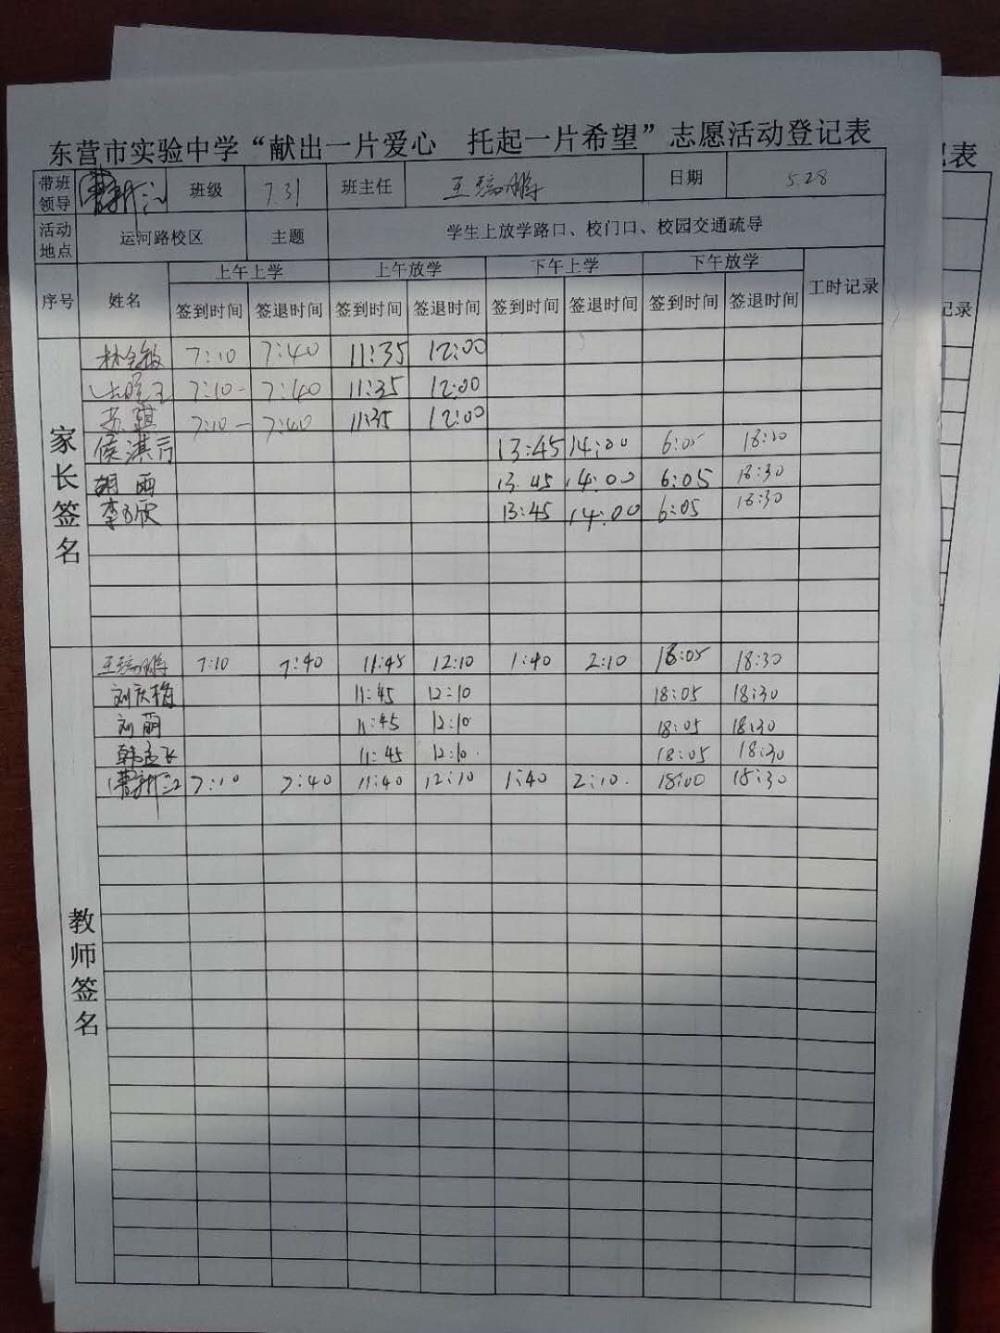 东营市实验中学“献出一片爱心 托起一片希望”志愿活动登记表
带班领导 曹新江 班级 7.31 班主任 日期 5.28
活动地点 运河路校区 主题 学生上放学路口、校门口、校园交通疏导
序号 姓名 上午上学 上午放学 下午上学 下午放学 工时记录
签到时间 签退时间 签到时间 签退时间 签到时间 签退时间 签到时间 签退时间
家长签名
7:10 7:40 11:35 12:00
7:10- 7:40 11:35 12:00
苏琪 7:10- 7:40 11:35 12:00
侯淇 13:45 14:00 6:05 18:30
胡 13:45 14:00 6:05 18:30
李 欣 13:45 14:00 6:05 18:30
教师签名
7:10 7:40 11:45 12:10 1:40 2:10 18:05 18:30
刘庆梅 11:45 12:10 18:05 18:30
刘丽 11:45 12:10 18:05 18:30
韩孟飞 11:45 12:10. 18:05 18:30
曹新江 7:10 7:40 11:40 12:10 1:40 2:10. 18:00 18:30
表
记录